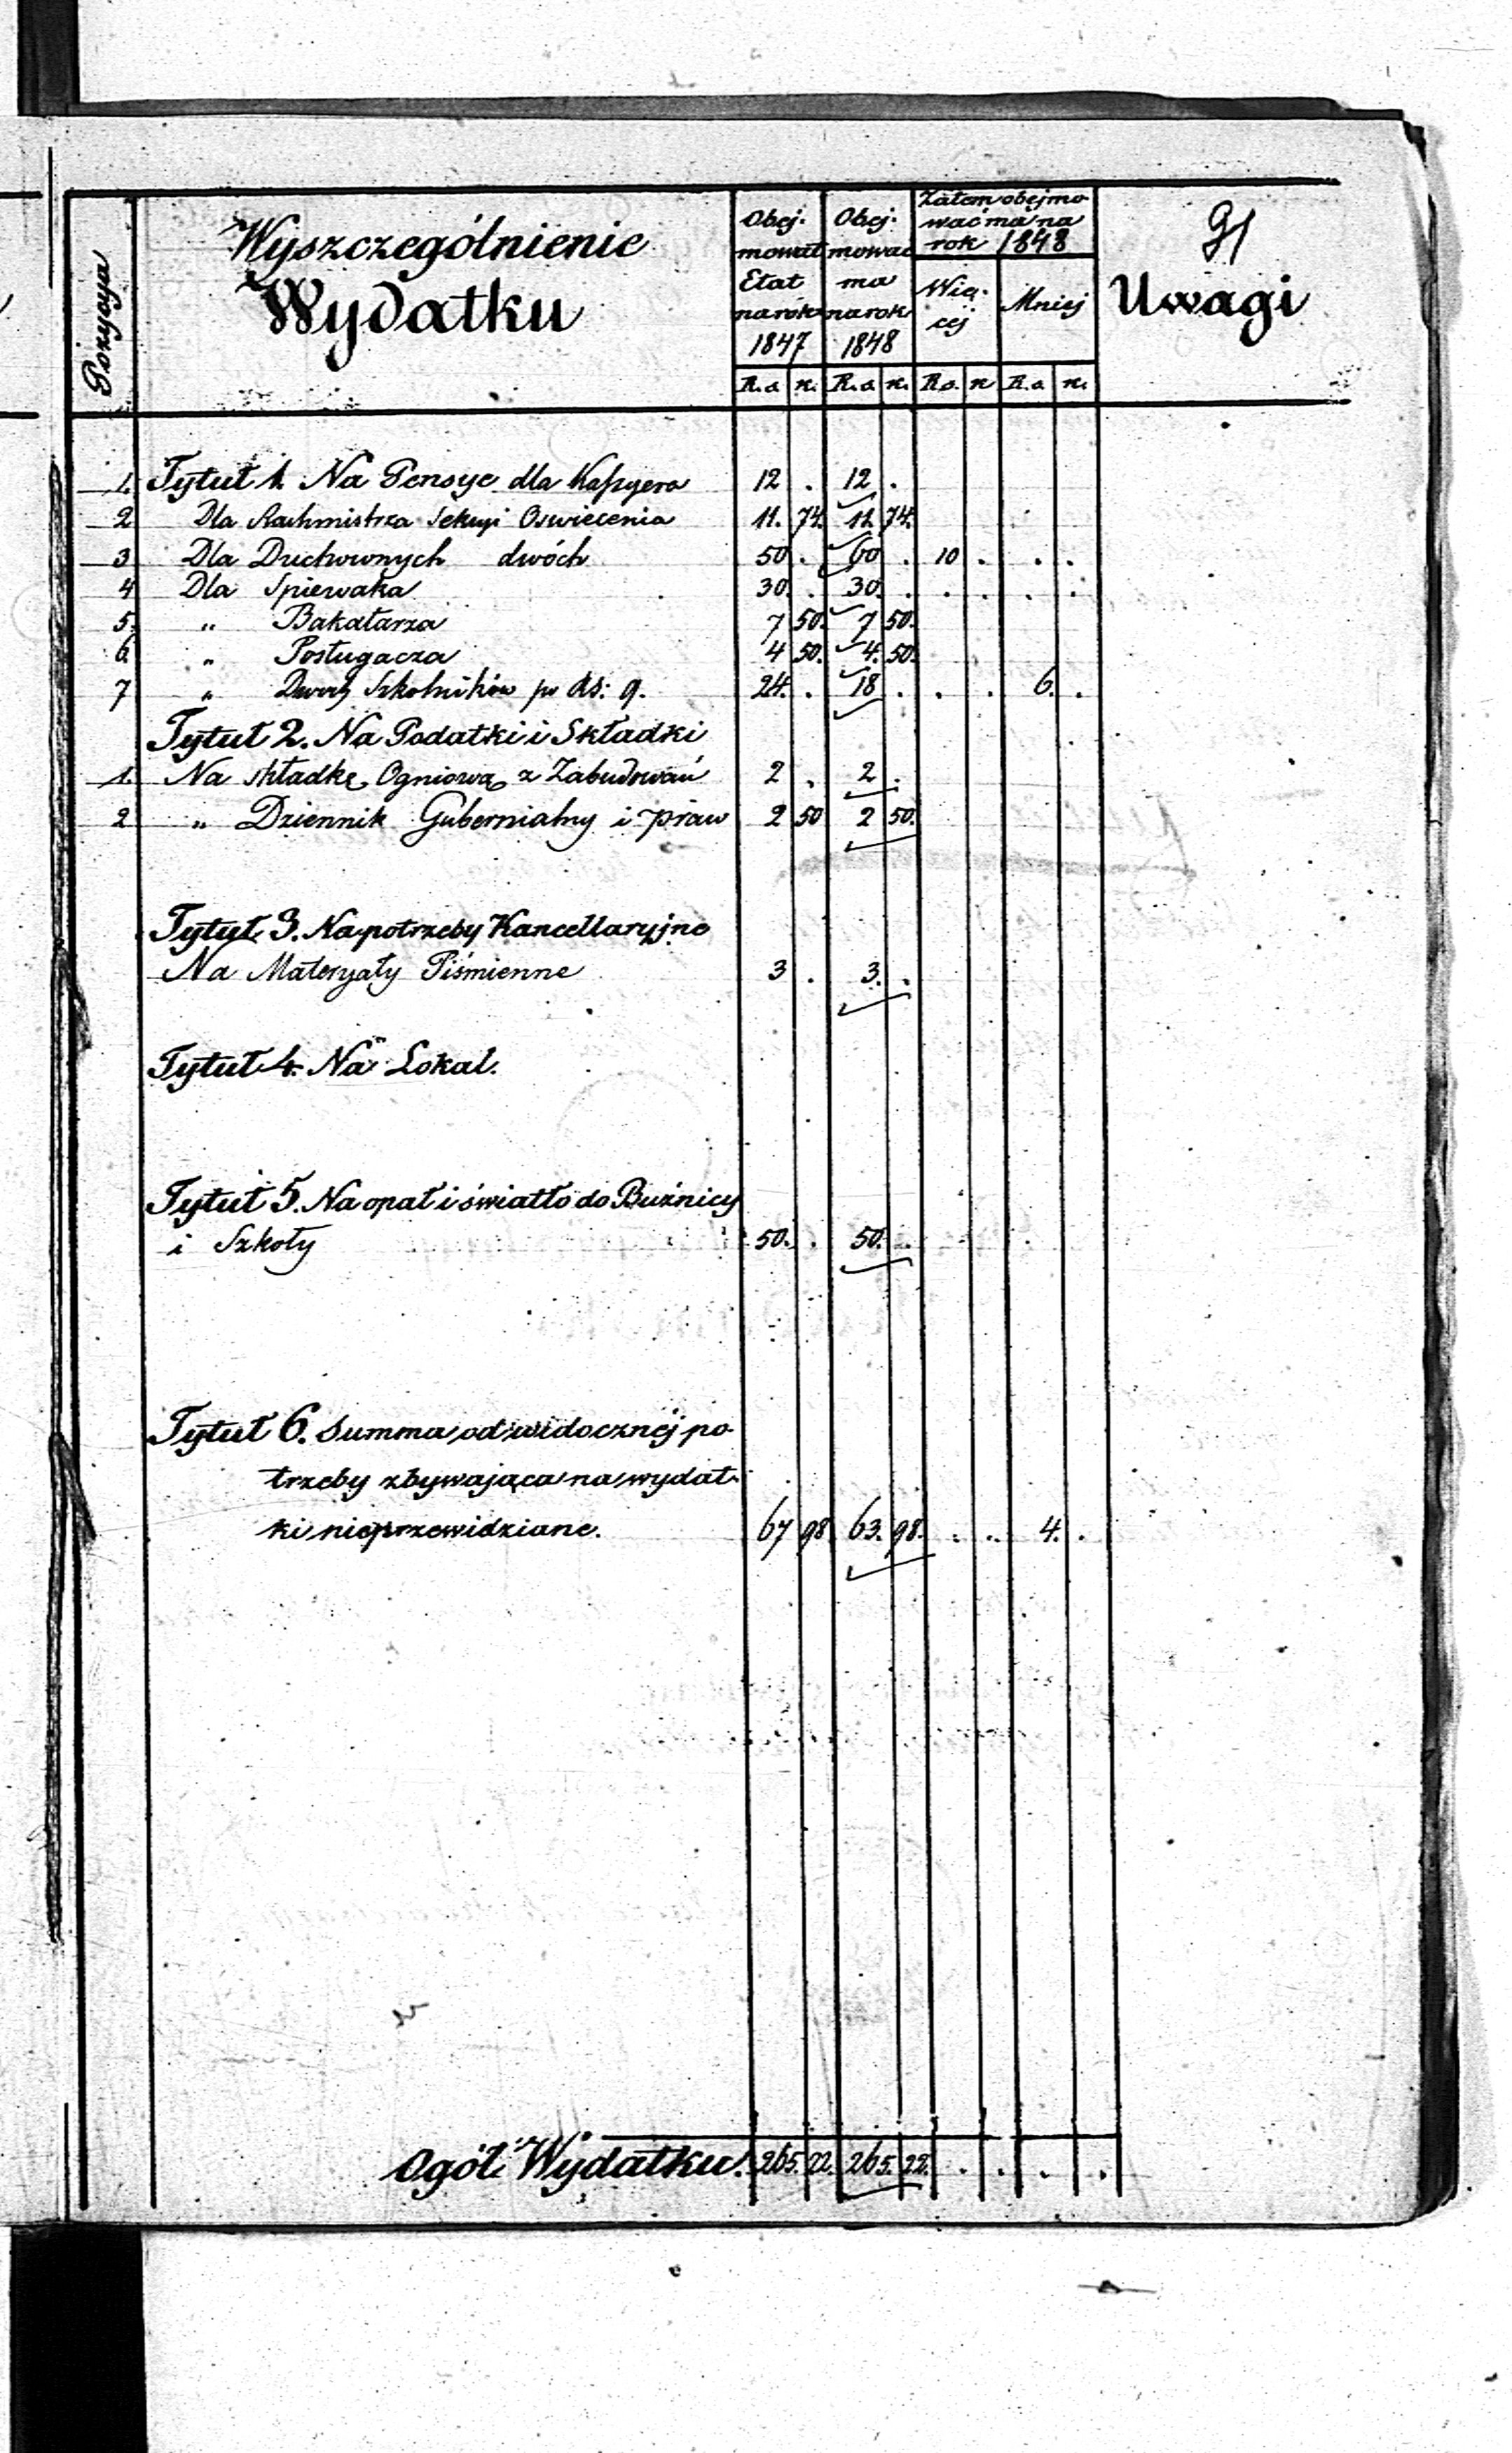 91
Pozycya
Wyszczególnienie
Wydatku
Obej-
mował
Etat
na rok
1847
Obej-
mować
ma
na rok
1848
Zatem obejmo-
wać ma na
rok 1848
Wię-
cej
Mniej
Uwagi
R.s. k. R.s. k. R.s. k. R.s. k.
1. Tytuł 1. Na Pensye dla Kassyera 12 . 12 .
2 Dla Rachmistrza Sekcyi Oswiecenia 11. 74. 11. 74.
3 Dla Duchownych dwóch 50 . 60 . 10 . . .
4 Dla Spiewaka 30. . 30. . . . . .
5. " Bakałarza 7 50. 7 50.
6. " Posługacza 4 50. 4. 50.
7 " Dwóch Szkolników po Rs: 9. 24. . 18 . . . 6. .
Tytuł 2. Na Podatki i Składki
1. Na składkę Ogniową z Zabudowań 2 . 2 .
2 " Dziennik Gubernialny i praw 2 50 2 50.
Tytuł 3. Na potrzeby Kancellaryjne
Na Materyały Piśmienne 3 . 3. .
Tytuł 4. Na Lokal.
Tytuł 5. Na opał i światło do Buźnicy
i Szkoły 50. . 50. .
Tytuł 6. Summa od widocznéj po-
trzeby zbywająca na wydat-
ki nieprzewidziane. 67 98. 63. 98. . . 4. .
Ogół Wydatku. 265. 22. 265. 22. . . . .